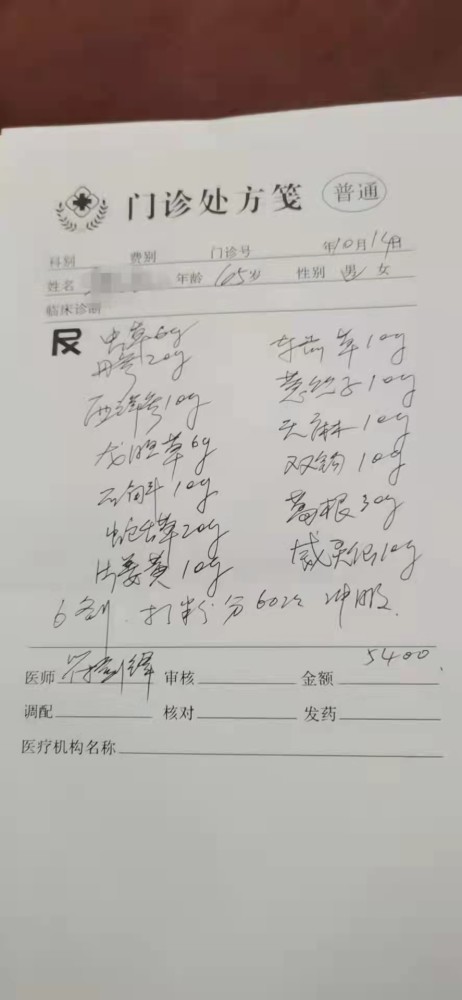 门诊处方笺 普通
科别 费别 门诊号 年10月14日
姓名 年龄 65岁 性别 男 女
临床诊断
虫草6g
丹参20g
西洋参10g
龙胆草6g
石斛10g
蛇舌草20g
片姜黄10g
车前草10g
茺蔚子10g
天麻10g
双钩10g
葛根30g
威灵仙10g
6剂 打粉分60次 冲服
医师 审核 金额 5400
调配 核对 发药
医疗机构名称